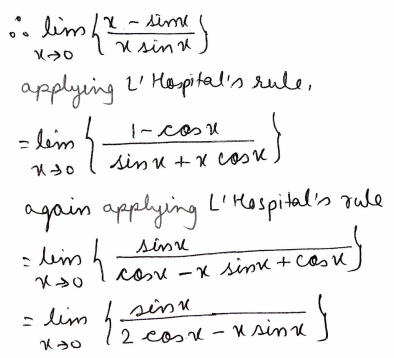 ∴ lim x→0 { (x - sinx) / (x sinx) }
applying L' Hospital's rule,
= lim x→0 { (1 - cosx) / (sinx + x cosx) }
again applying L' Hospital's rule
= lim x→0 { sinx / (cosx - x sinx + cosx) }
= lim x→0 { sinx / (2 cosx - x sinx) }